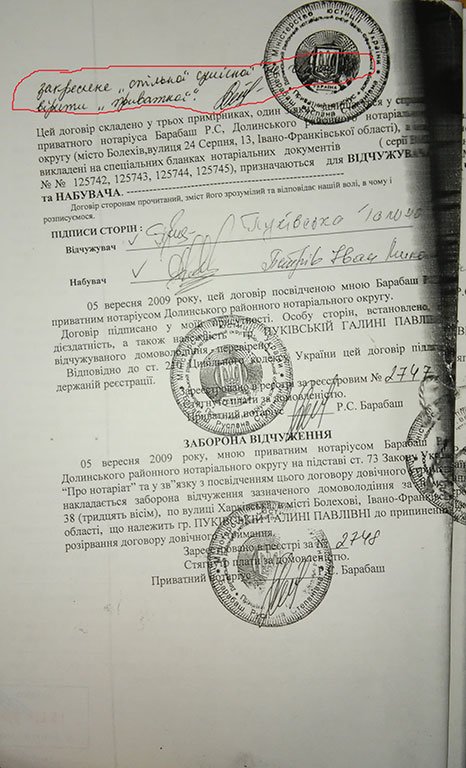 закреслене „спільної сумісної"
вірити „приватної".
Міністерство юстиції України
Цей договір складено у трьох примірниках, один з
приватного нотаріуса Барабаш Р.С, Долинського
округу (місто Болехів,вулиця 24 Серпня, 13, Івано-Франківської області), а
викладені на спеціальних бланках нотаріальних документів ( серії
№№ 125742, 125743, 125744, 125745), призначаються для ВІДЧУЖУВА
та НАБУВАЧА.
Договір сторонам прочитаний, зміст його зрозумілий та відповідає нашій волі, в чому і
розписуємося.
ПІДПИСИ СТОРІН :
Відчужувач Пуківська Галина
Набувач Петрів Іван
05 вересня 2009 року, цей договір посвідченою мною Барабаш Р.
приватним нотаріусом Долинського районного нотаріального округу.
Договір підписано у моїй присутності. Особу сторін, встановлено,
дієздатність, а також належність гр. ПУКІВСЬКІЙ ГАЛИНІ ПАВЛІВНІ
відчужуваного домоволодіння перевірено.
Відповідно до ст. 210 Цивільного кодексу України цей договір підлягає
державній реєстрації.
Зареєстровано в реєстрі за реєстровим № 2747
Стягнуто плати за домовленістю.
Приватний нотаріус Р.С. Барабаш
ЗАБОРОНА ВІДЧУЖЕННЯ
05 вересня 2009 року, мною приватним нотаріусом Барабаш Р.
Долинського районного нотаріального округу на підставі ст. 73 Закону
"Про нотаріат" та у зв"язку з посвідченням цього договору довічного
накладається заборона відчуження зазначеного домоволодіння за
38 (тридцять вісім), по вулиці Харківська, в місті Болехові, Івано-Франківської
області, що належить гр. ПУКІВСЬКІЙ ГАЛИНІ ПАВЛІВНІ до припинення
розірвання договору довічного утримання.
Зареєстровано в реєстрі за № 2748
Стягнуто плати за домовленістю.
Приватний нотаріус Р.С. Барабаш